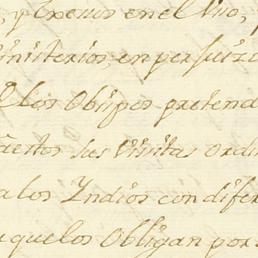 y Exesos en el Uso,
inisterios, en perjuizi
los Obispos pretend
sus Visitas ordi
a los Yndios con difer
aquelos Obligan por